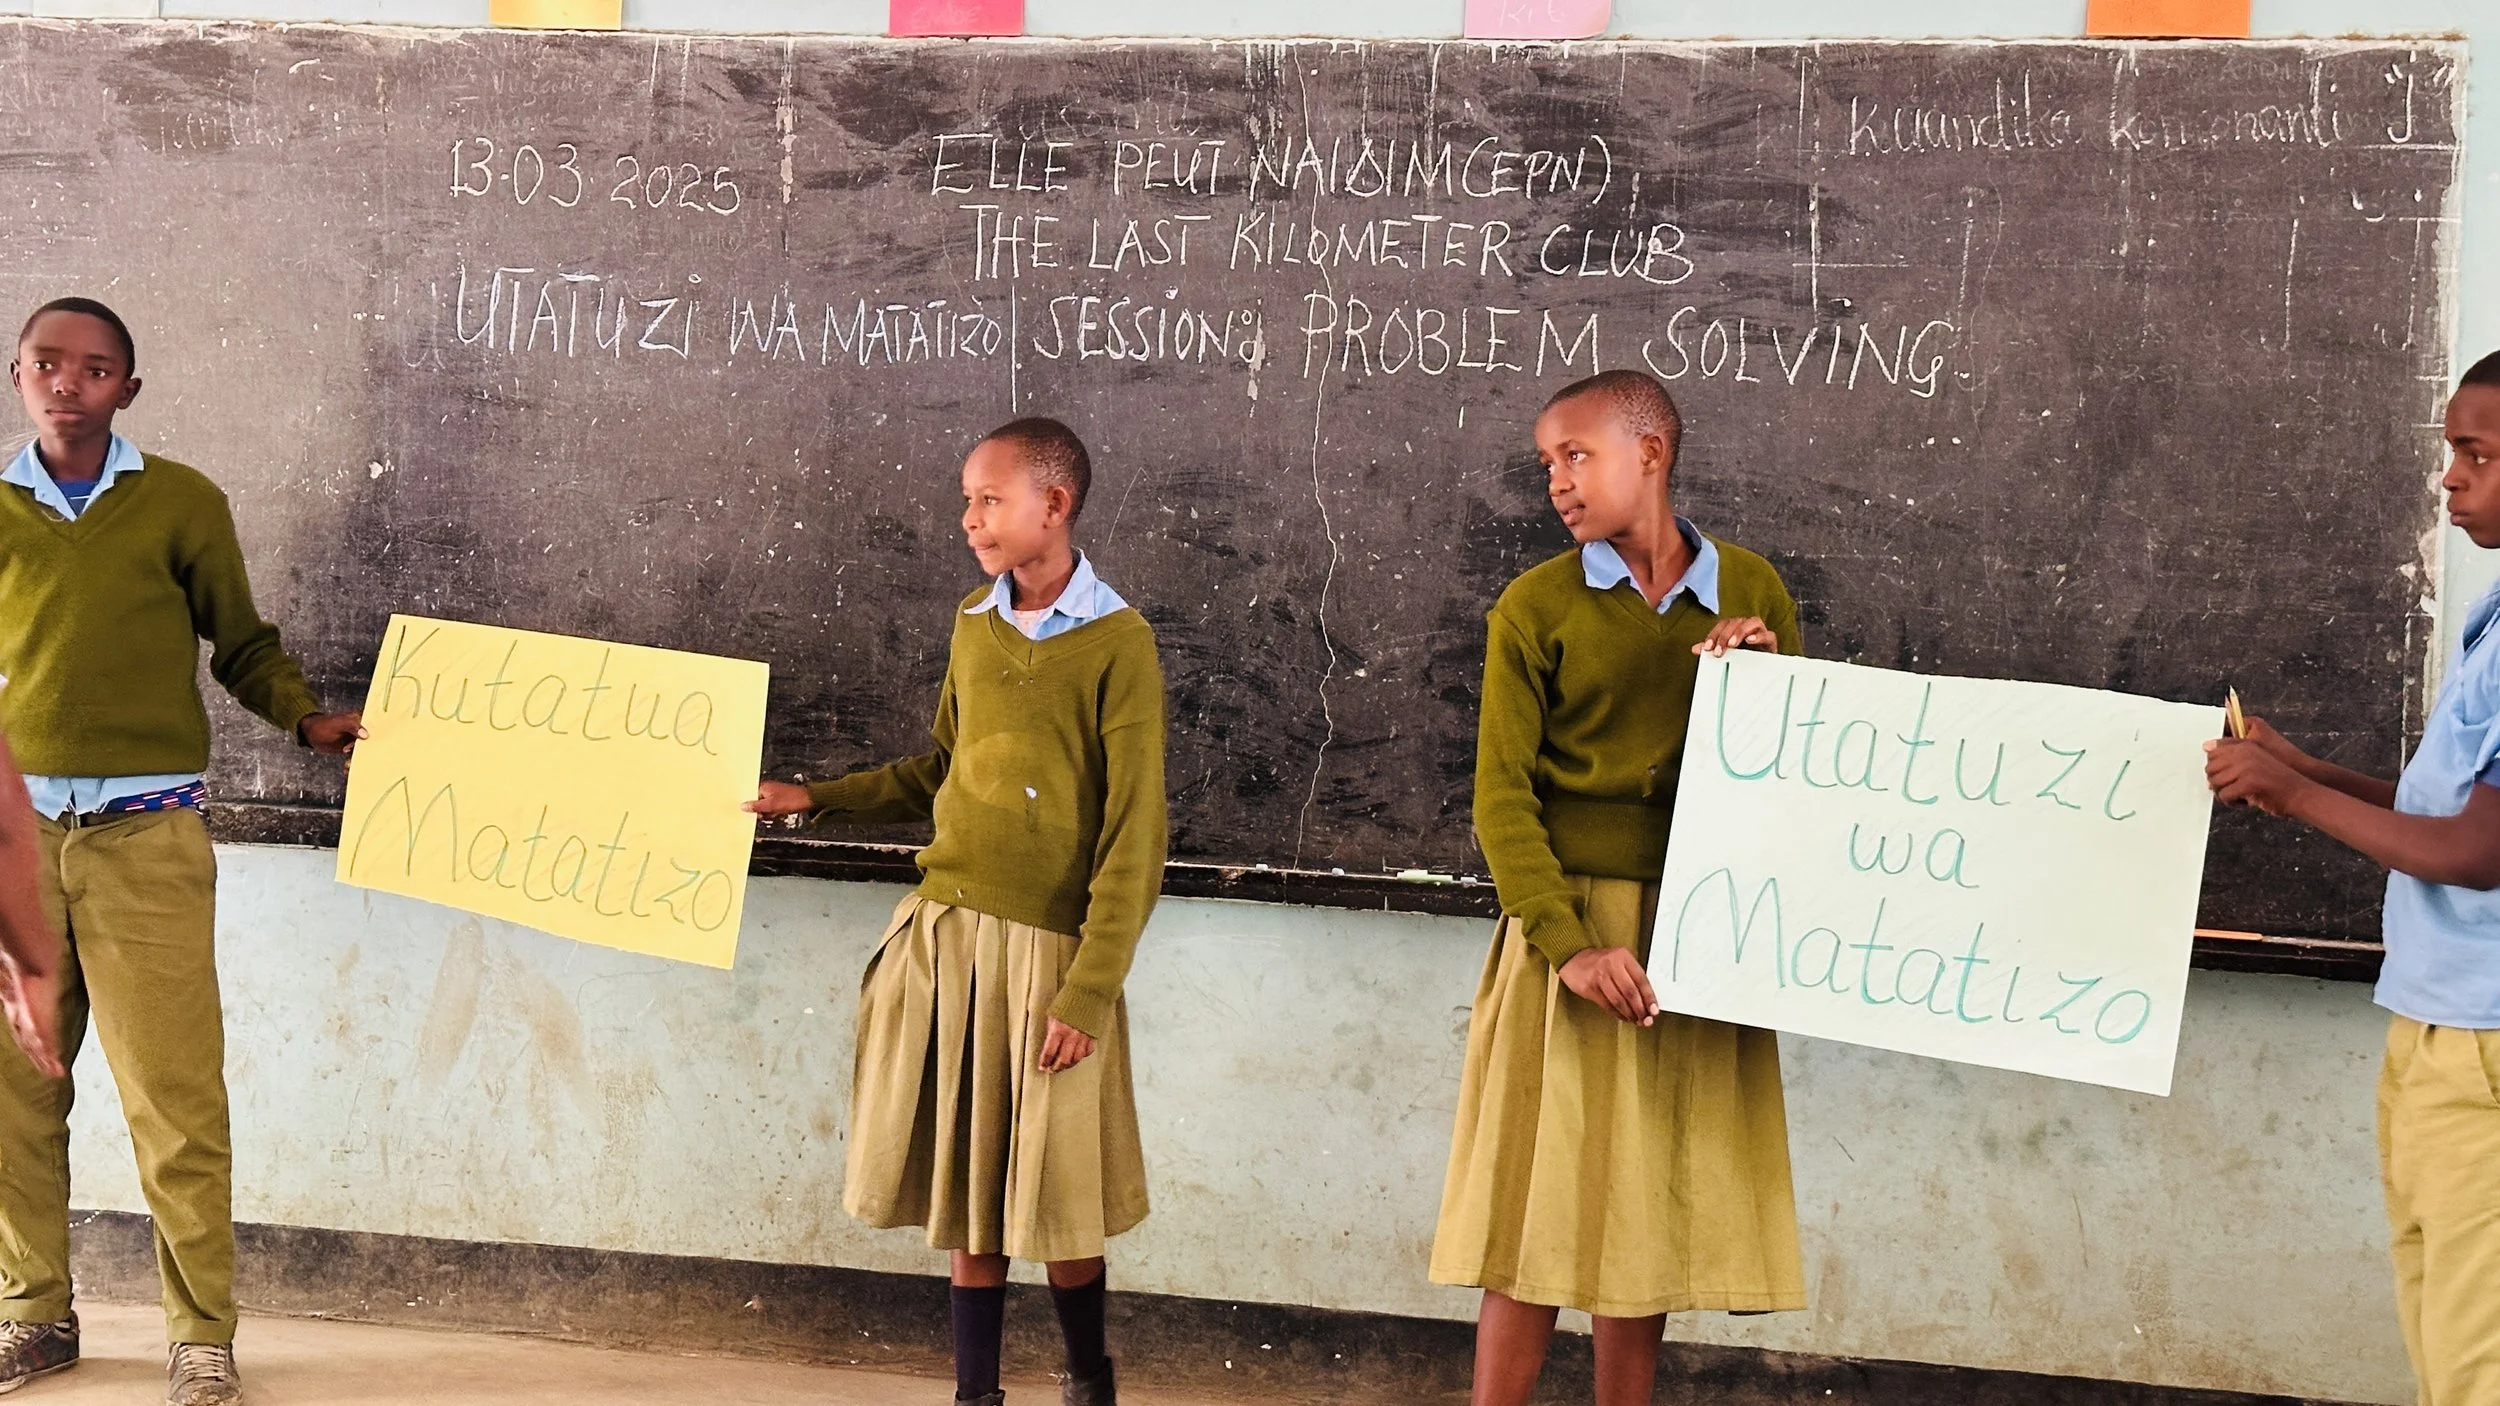 13.03.2025
ELLE PEUT NAIDIM (EPN)
THE LAST KILOMETER CLUB
UTATUZI WA MATATIZO SESSION: PROBLEM SOLVING
Kuandika konsonanti "j"
Kutatua
Matatizo
Utatuzi
wa
Matatizo